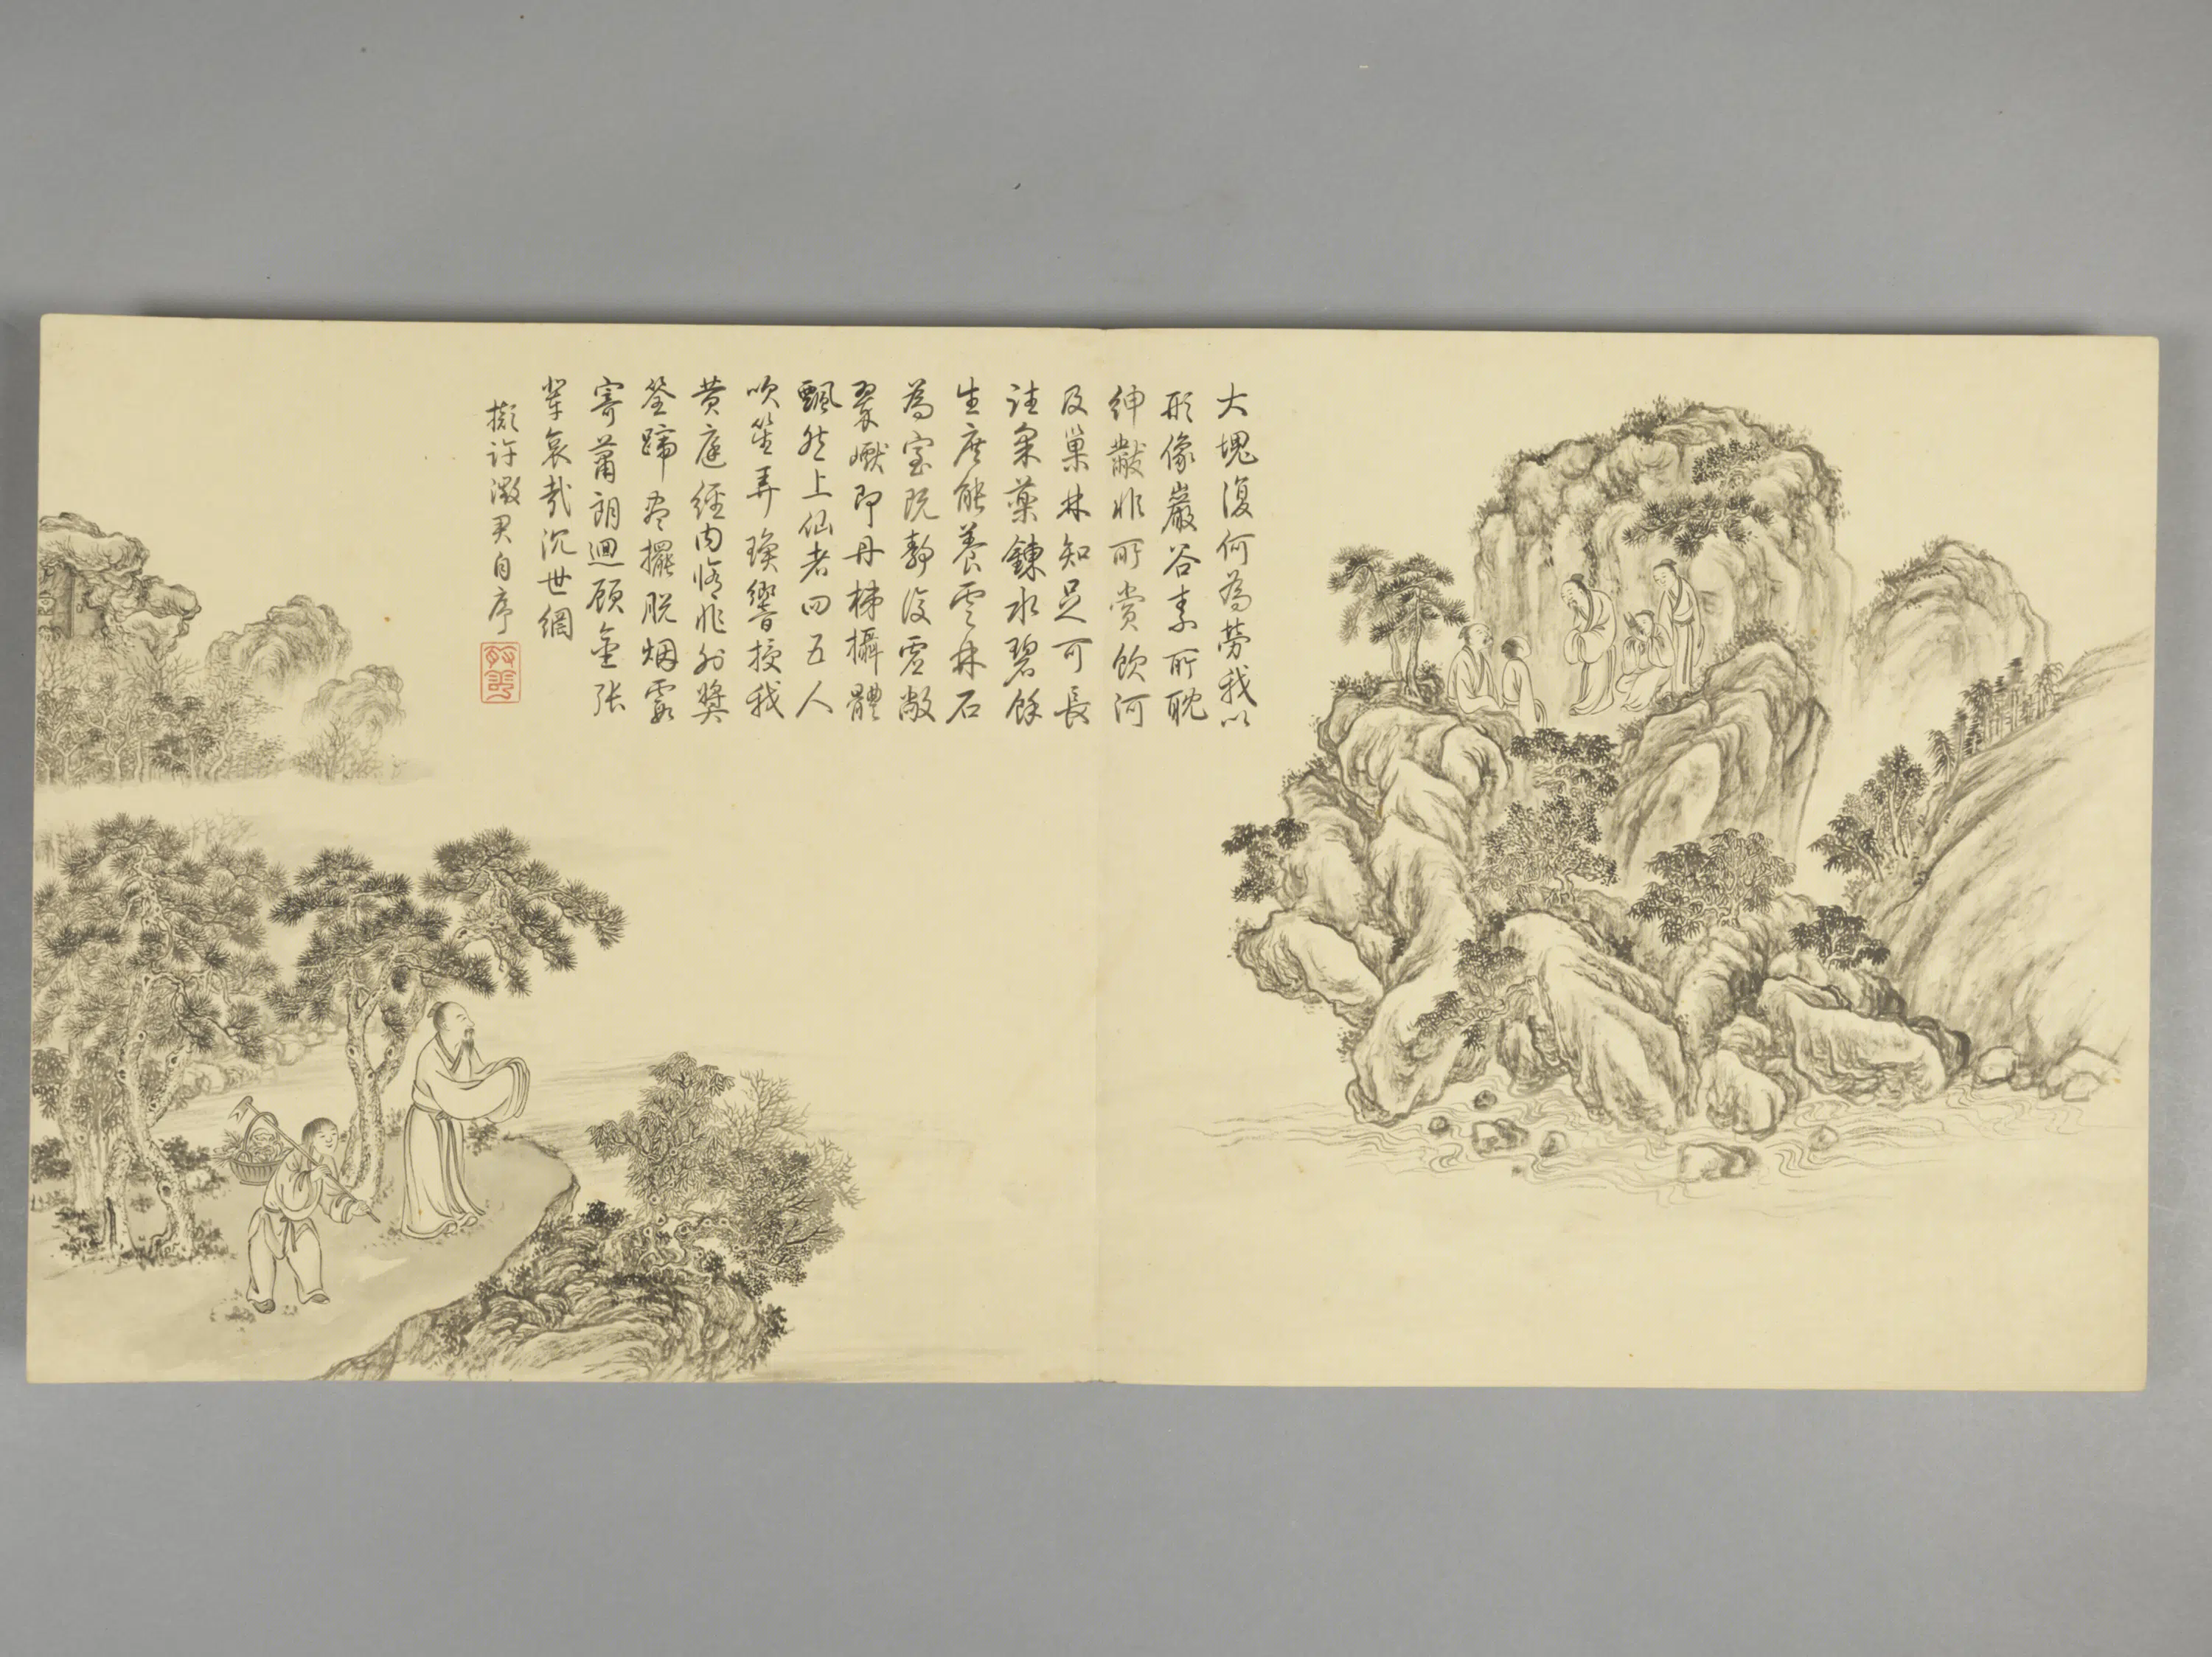 大塊復何為勞我以
形像巖谷素所耽
紳黻非所賞飲河
及巢林知足可長
往采藥鍊水碧餘
生庶能養雲林石
為室既靜復虛敞
翠巘即丹梯攝體
飄然上仙者四五人
吹笙弄瑛響授我
黃庭經內脩非外獎
筌蹄盡擺脫烟霞
寄蕭朗迴顧金張
輩哀哉沉世網
擬許徵君自序